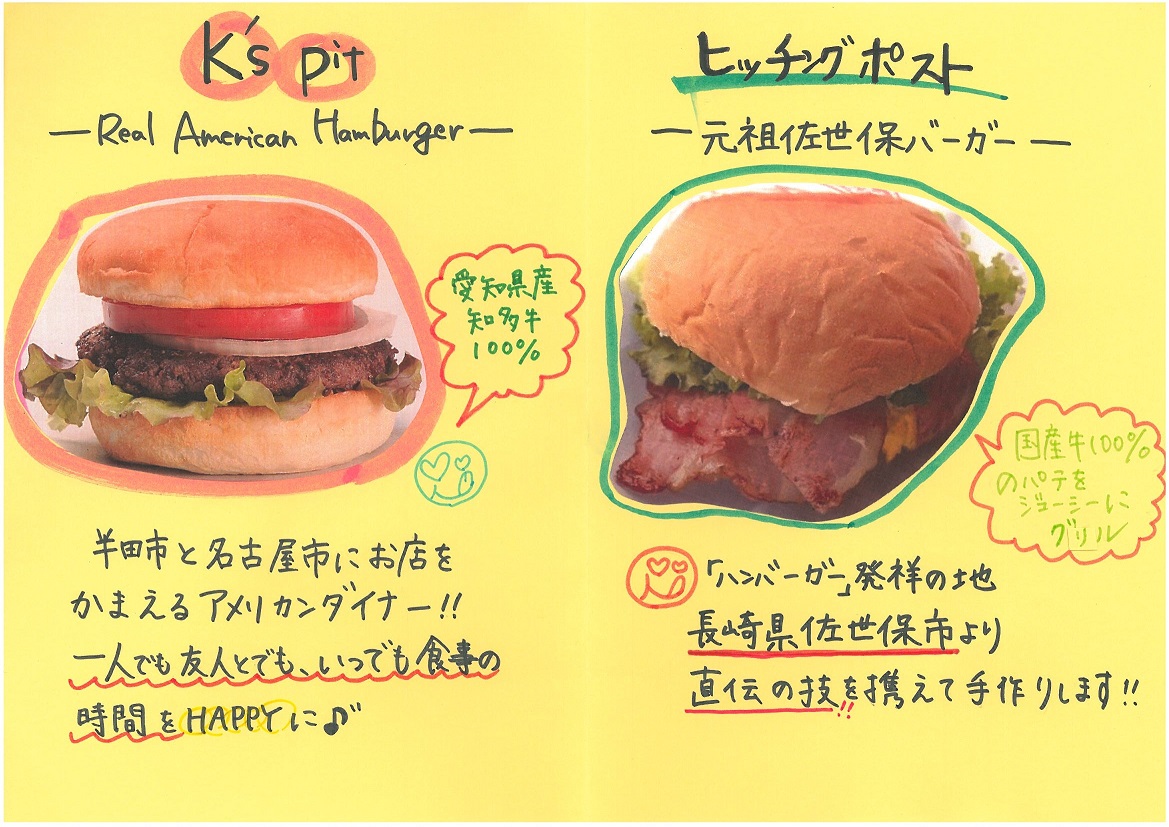 K's pit
—Real American Hamburger—
愛知県産
知多牛
100%
半田市と名古屋市にお店を
かまえるアメリカンダイナー!!
一人でも友人とでも、いつでも食事の
時間をHAPPYに♪
ヒッチングポスト
—元祖佐世保バーガー—
国産牛100%
のパテを
ジューシーに
グリル
「ハンバーガー」発祥の地
長崎県佐世保市より
直伝の技を携えて手作りします!!